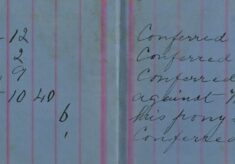 12 Conferred
2 Conferred
9 Conferred
10 40 against
6 his pony
Conferred